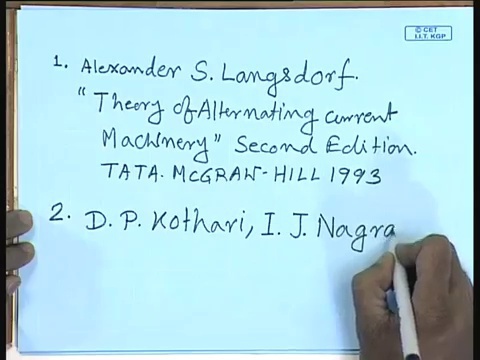 © CET
I.I.T. KGP
1. Alexander S. Langsdorf.
"Theory of Alternating current
Machinery" Second Edition.
TATA. McGRAW-HILL 1993
2. D. P. Kothari, I. J. Nagra